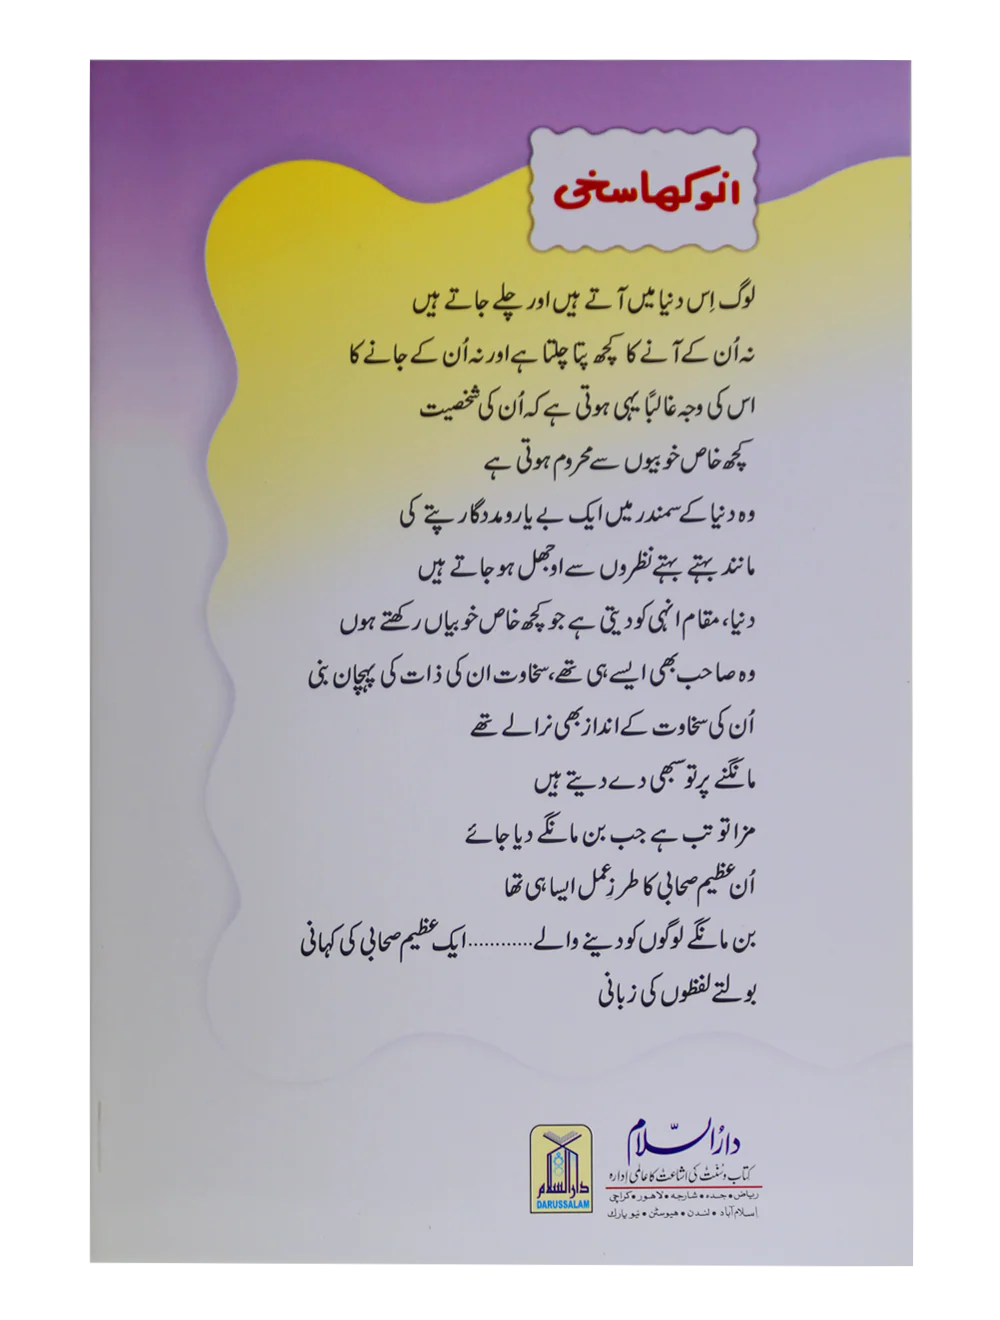 انوکھا سخی
لوگ اِس دنیا میں آتے ہیں اور چلے جاتے ہیں
نہ اُن کے آنے کا کچھ پتا چلتا ہے اور نہ اُن کے جانے کا
اس کی وجہ غالباً یہی ہوتی ہے کہ اُن کی شخصیت
کچھ خاص خوبیوں سے محروم ہوتی ہے
وہ دنیا کے سمندر میں ایک بے یارومددگار پتے کی
مانند بہتے بہتے نظروں سے اوجھل ہو جاتے ہیں
دنیا، مقام انہی کو دیتی ہے جو کچھ خاص خوبیاں رکھتے ہوں
وہ صاحب بھی ایسے ہی تھے، سخاوت ان کی ذات کی پہچان بنی
اُن کی سخاوت کے انداز بھی نرالے تھے
مانگنے پر تو سبھی دے دیتے ہیں
مزا تو تب ہے جب بن مانگے دیا جائے
اُن عظیم صحابی کا طرزِ عمل ایسا ہی تھا
بن مانگے لوگوں کو دینے والے............ایک عظیم صحابی کی کہانی
بولتے لفظوں کی زبانی
دارُالسّلام
کتاب و سنّت کی اشاعت کا عالمی ادارہ
ریاض • جدہ • شارجہ • لاہور • کراچی
اِسلام آباد • لندن • ہیوسٹن • نیو یارک
دارالسلام
DARUSSALAM